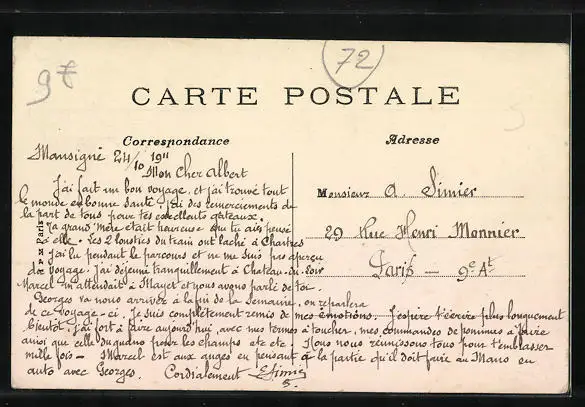 9 f
72
CARTE POSTALE
Correspondance
Adresse
Mansigné 24/10 1911
Mon Cher Albert
J'ai fait un bon voyage, et j'ai trouvé tout
le monde en bonne santé. J'ai des remerciements de
la part de tous pour tes excellents gateaux.
Ta grand'mère était heureuse que tu aies pensé
à elle. Les 2 loustics du train ont laché à Chartres
J'ai lu pendant le parcours et ne me suis pas aperçu
du voyage. J'ai déjeuné tranquillement à Chateau-du-Loir
Marcel m'attendait à Mayet et nous avons parlé de toi.
Georges va nous arriver à la fin de la Semaine, on reparlera
de ce voyage-ci. Je suis complètement remis de mes émotions. J'espère t'écrire plus longuement
bientôt, j'ai fort à faire aujourd'hui, avec mes termes à toucher, mes commandes de pommes à faire
ainsi que celle du guano pour les champs etc etc. Nous nous réunissons tous pour t'embrasser
mille fois - Marcel est aux anges en pensant à la partie qu'il doit faire au Mans en
auto avec Georges. Cordialement ESimier
P M Paris
Monsieur A. Simier
29 Rue Henri Monnier
Paris - 9e At